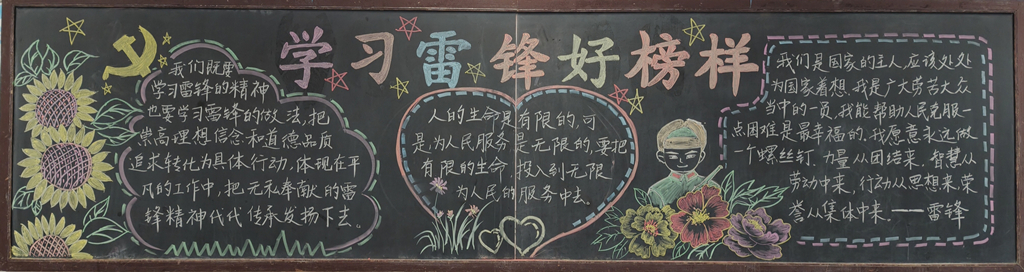 学习雷锋好榜样
我们既要
学习雷锋的精神
也要学习雷锋的做法,把
崇高理想信念和道德品质
追求转化为具体行动,体现在平
凡的工作中,把无私奉献的雷
锋精神代代传承发扬下去。
人的生命是有限的,可
是,为人民服务是无限的,要把
有限的生命投入到无限
为人民的服务中去
我们是国家的主人,应该处处
为国家着想,我是广大劳苦大众
当中的一员,我能帮助人民克服一
点困难是最幸福的,我愿意永远做
一个螺丝钉,力量从团结来,智慧从
劳动中来,行动从思想来,荣
誉从集体中来.——雷锋